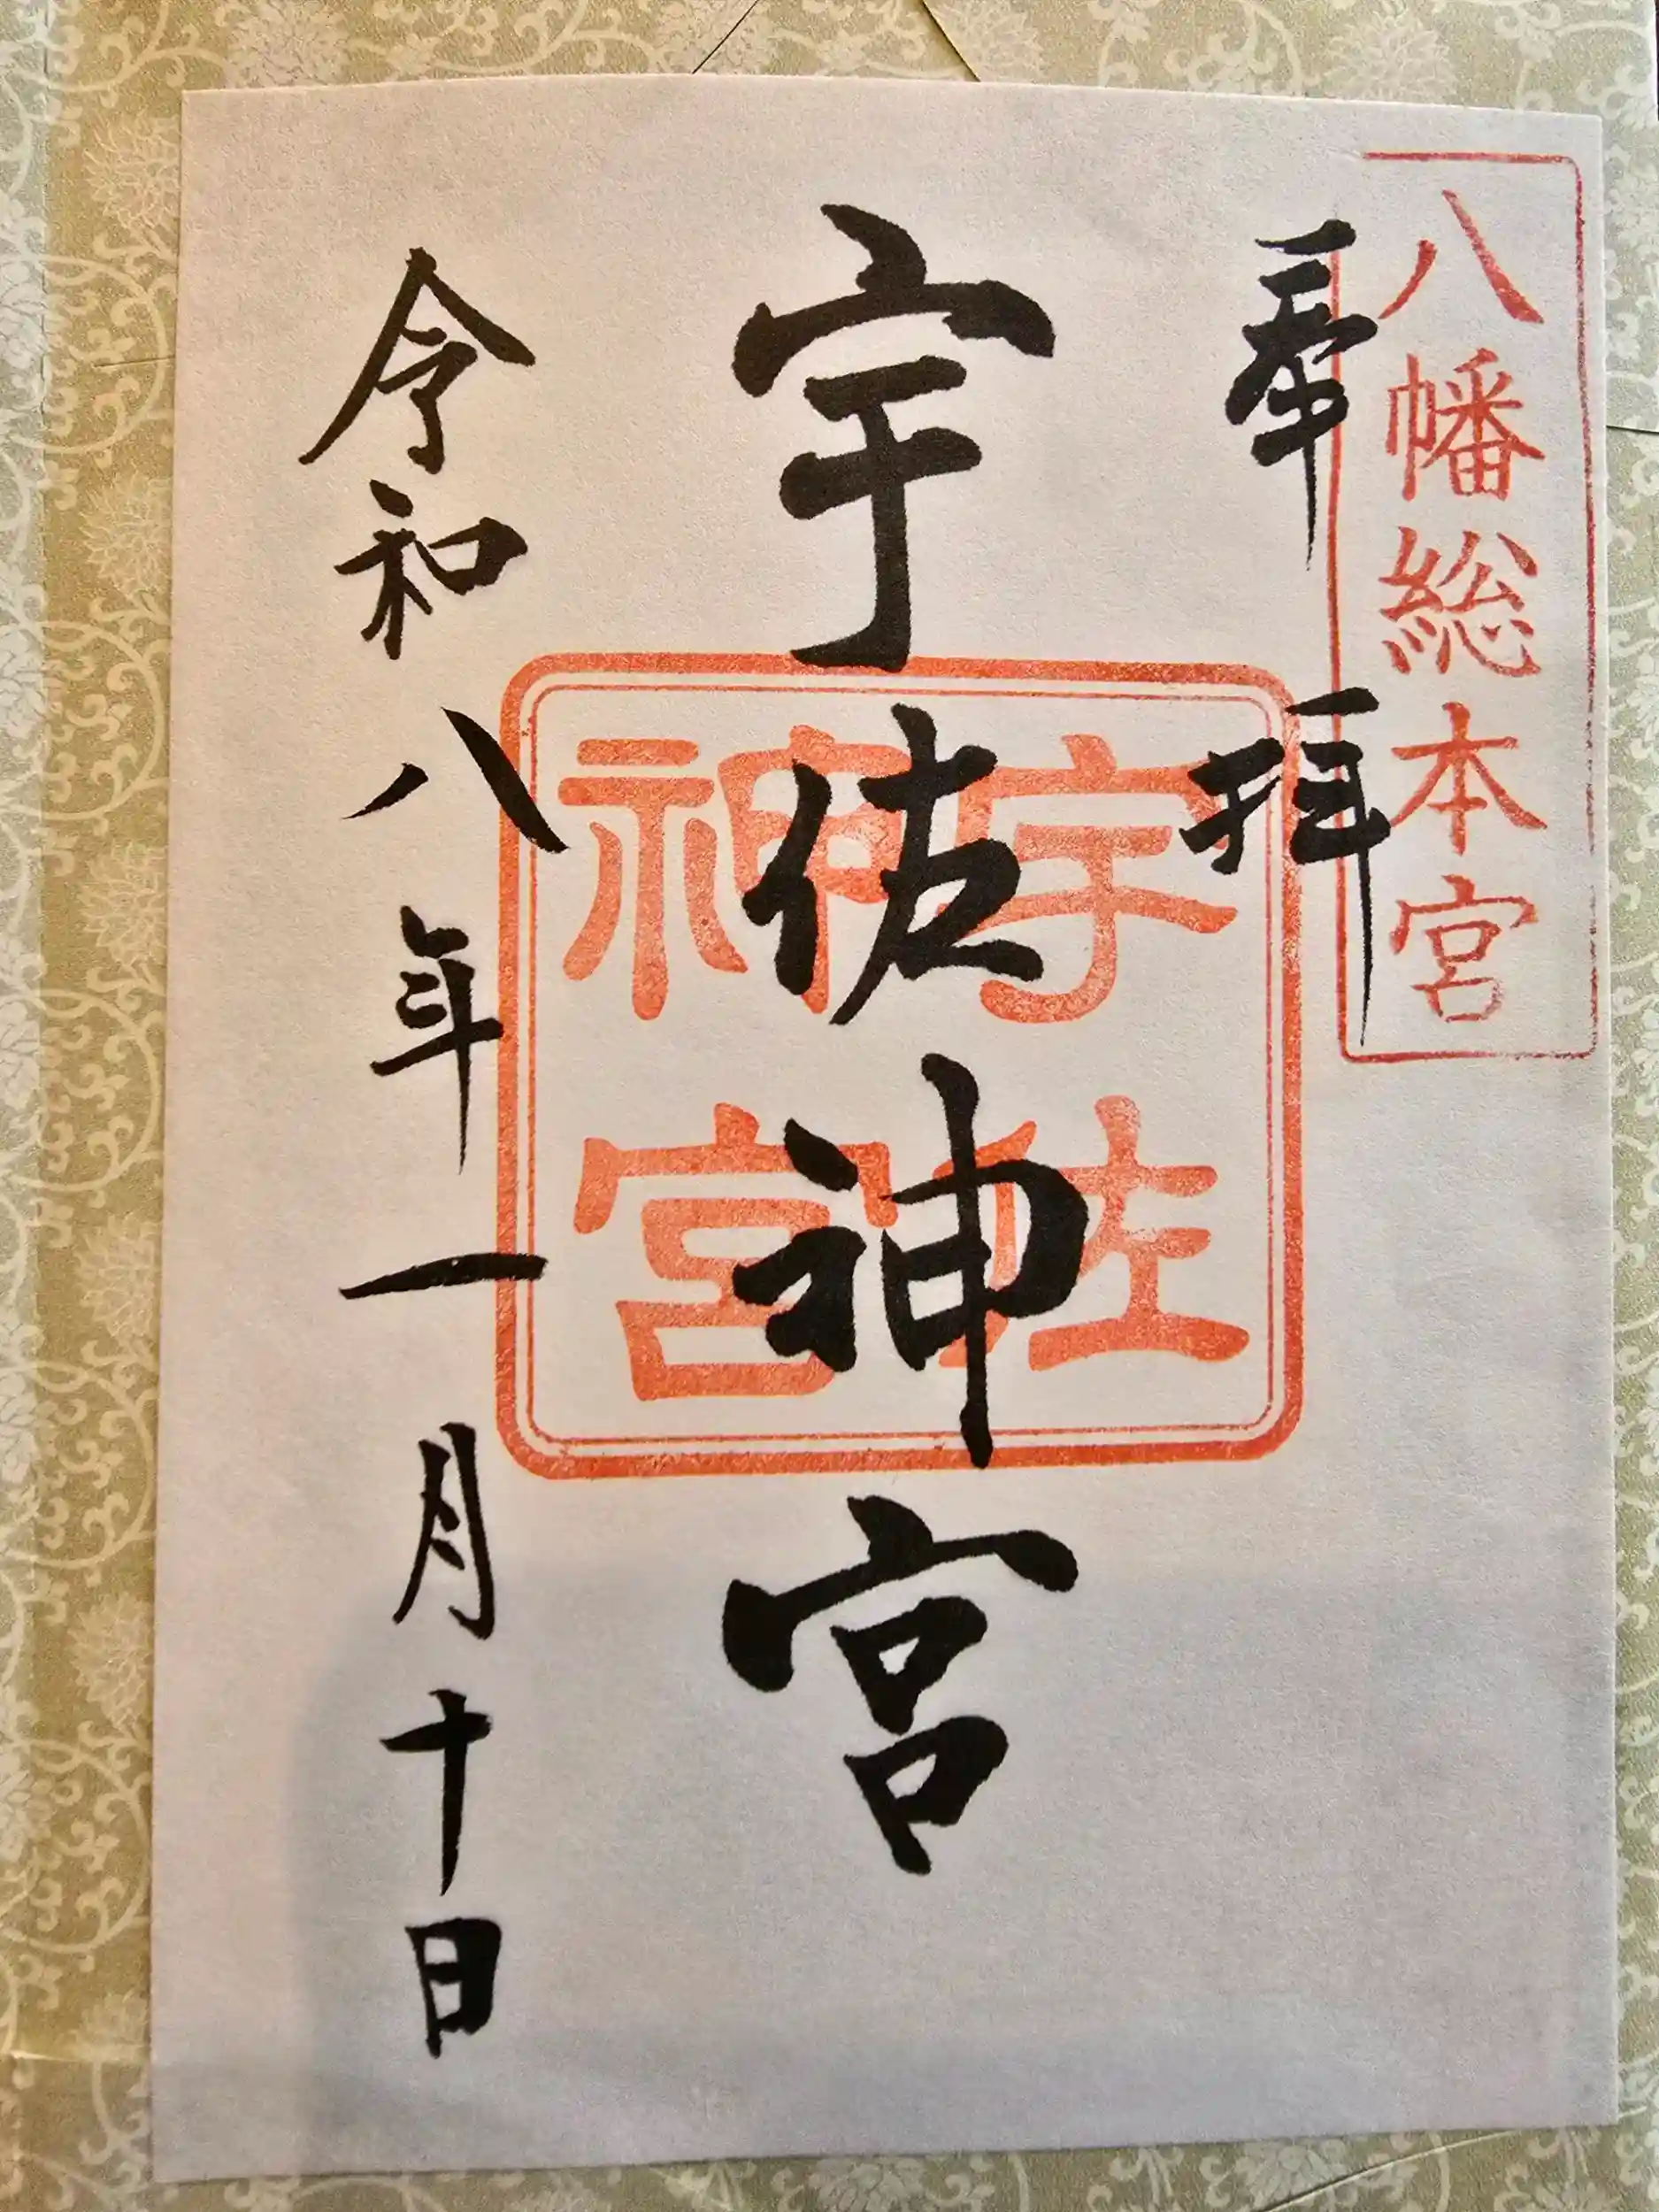 八幡総本宮
奉拝
宇佐神宮
宇佐
神宮
令和八年一月十日